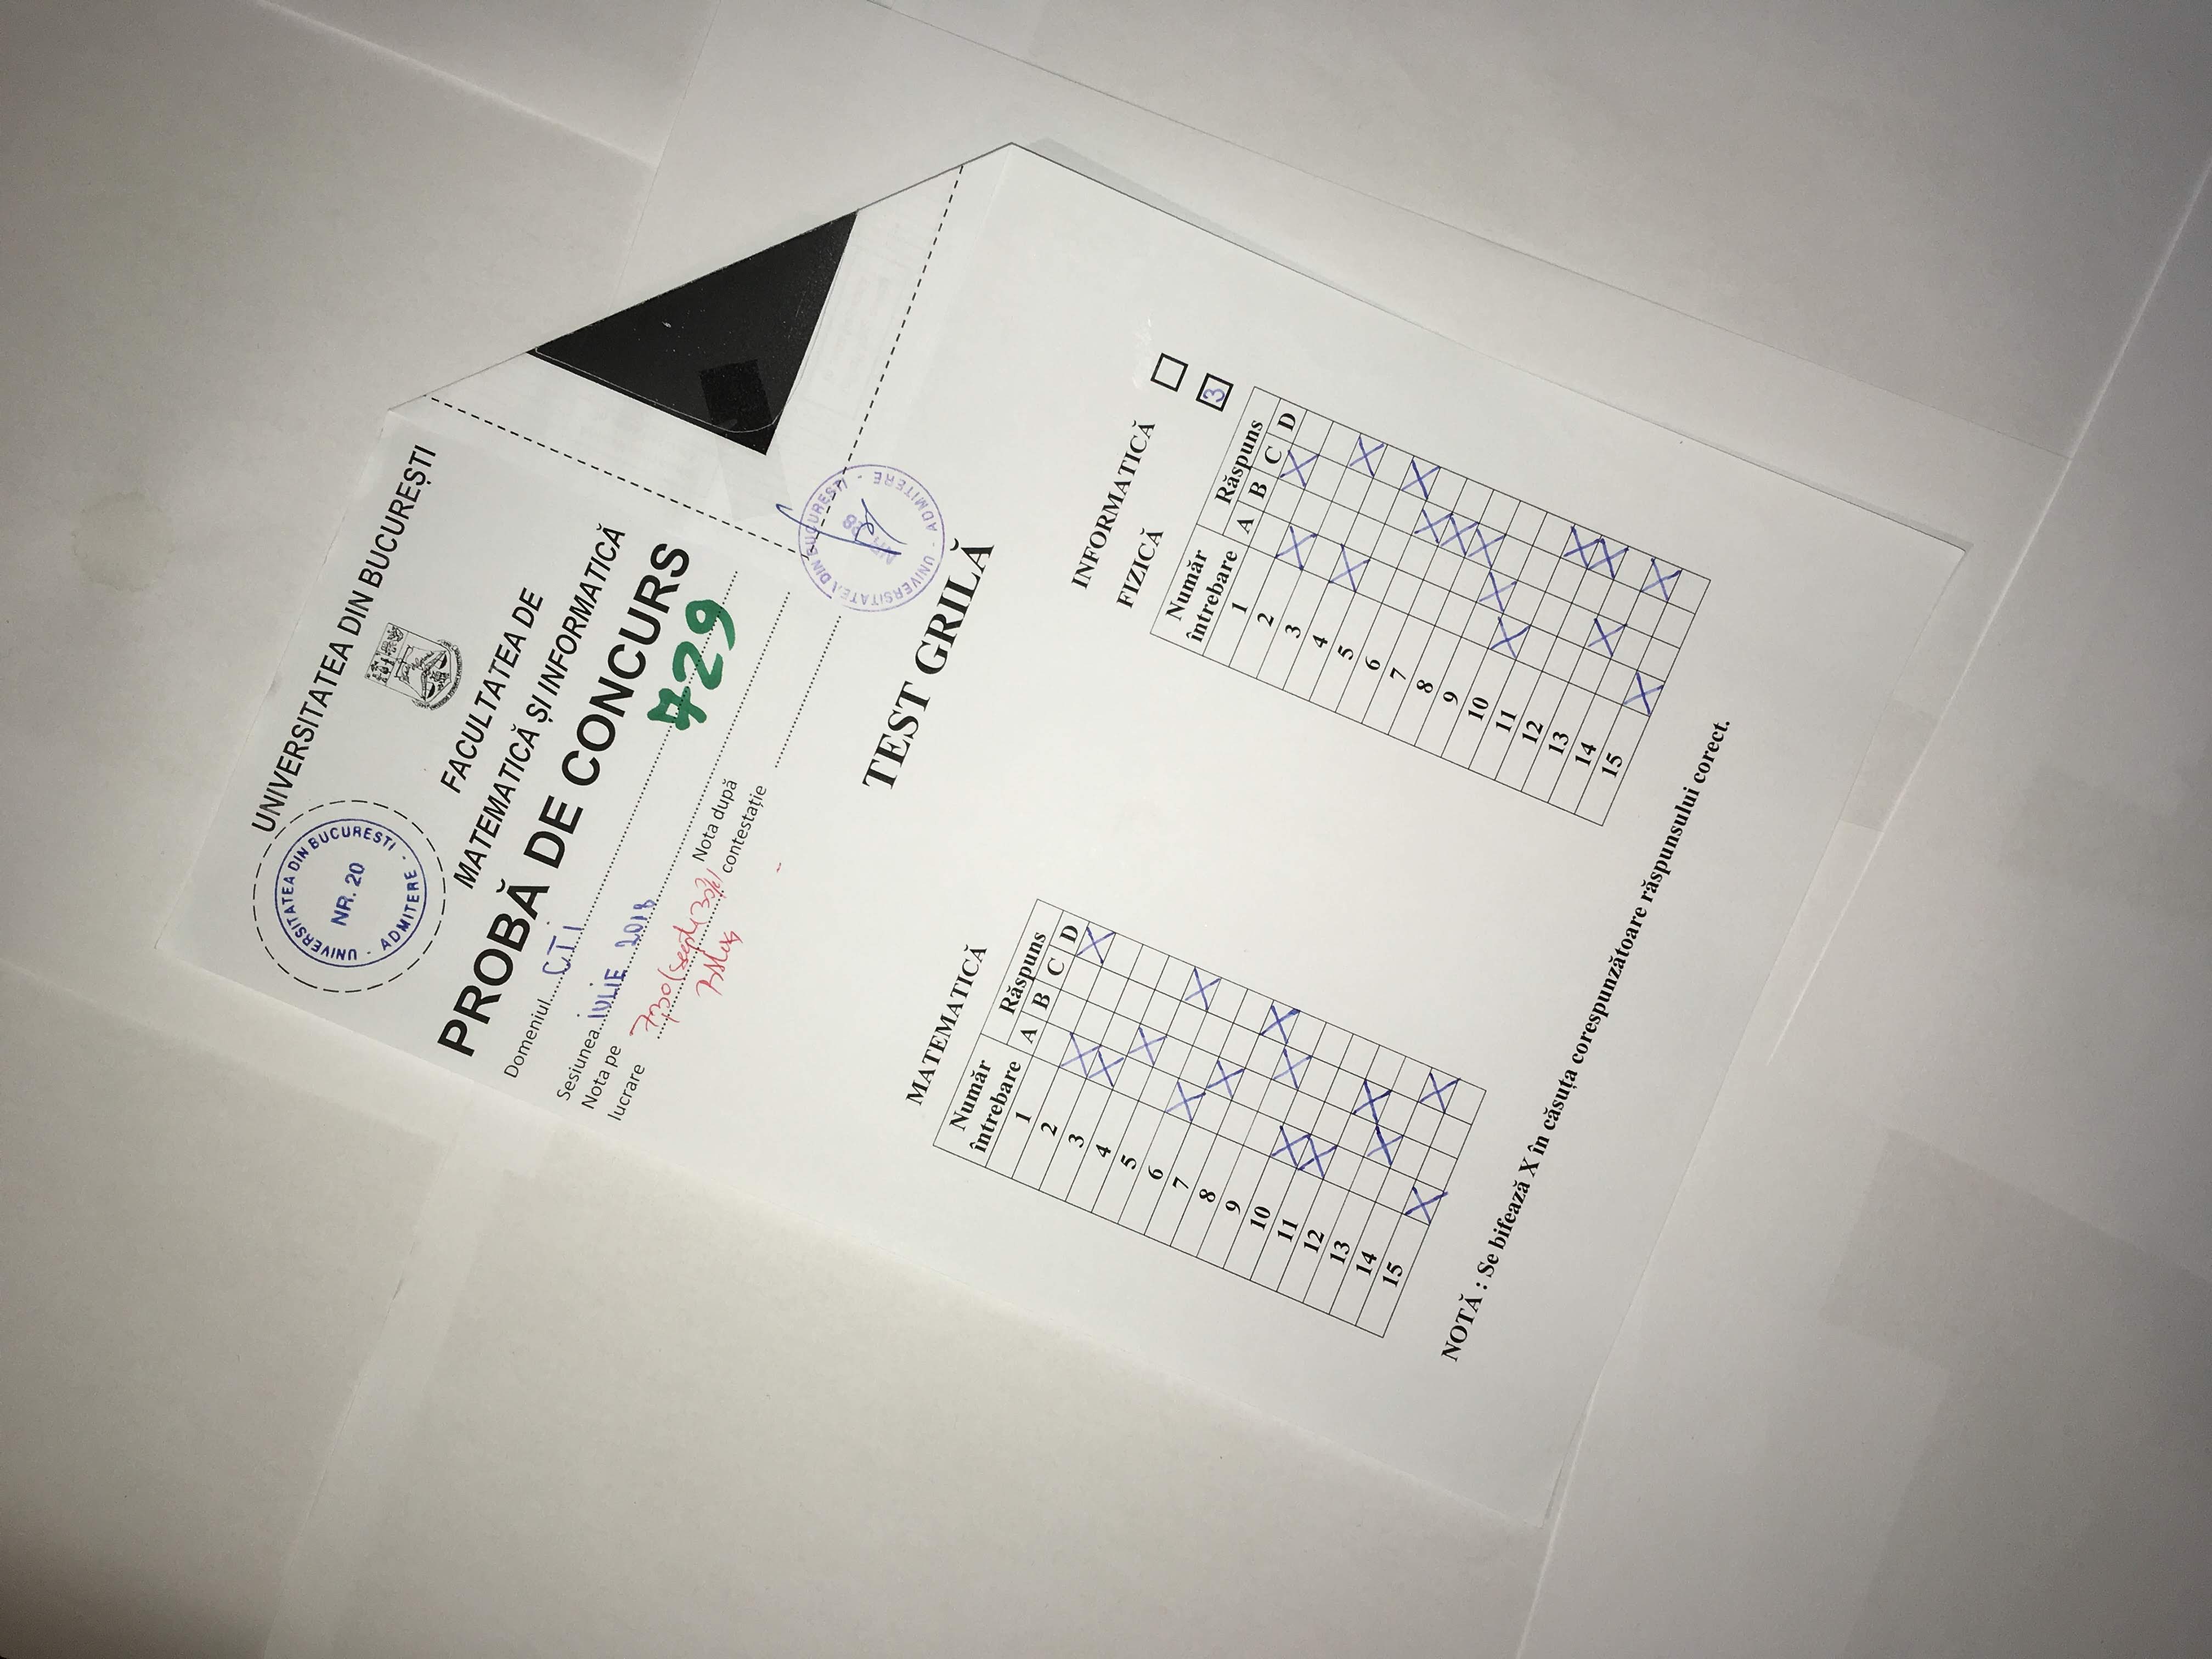 UNIVERSITATEA DIN BUCUREȘTI
UNIVERSITATEA DIN BUCURESTI - ADMITERE -
NR. 20
FACULTATEA DE
MATEMATICĂ ȘI INFORMATICĂ
PROBĂ DE CONCURS
Domeniul CTi
Sesiunea iULiE 2018
729
Nota pe
lucrare 7,30 (șapte 30%)
Nota după
contestație
UNIVERSITATEA DIN BUCURESTI - ADMITERE -
TEST GRILĂ
MATEMATICĂ
Număr
întrebare
Răspuns
A B C D
1 X
2 X
3 X
4 X
5 X
6 X
7 X
8 X
9 X
10 X
11 X
12 X
13 X
14 X
15 X
INFORMATICĂ
FIZICĂ 3
Număr
întrebare
Răspuns
A B C D
1 X
2 X
3 X
4 X
5 X
6 X
7 X
8 X
9 X
10 X
11 X
12 X
13 X
14 X
15 X
NOTĂ : Se bifează X în căsuța corespunzătoare răspunsului corect.